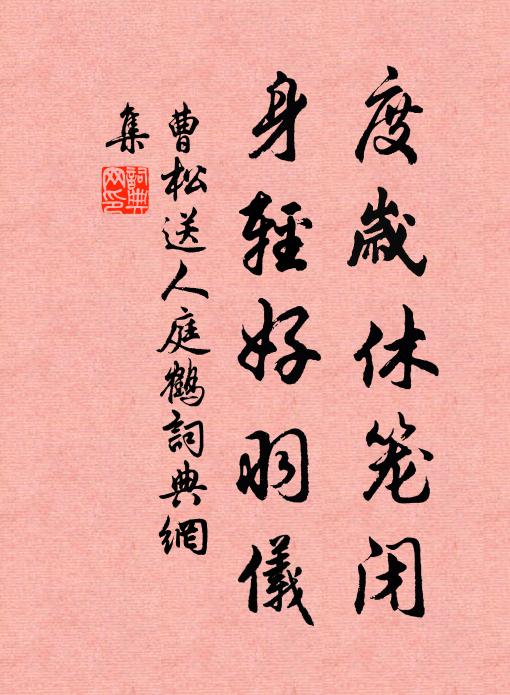 度歲休笼闭
身輕好羽儀
曹松送人庭鶴詞典網
集
詞典
网印